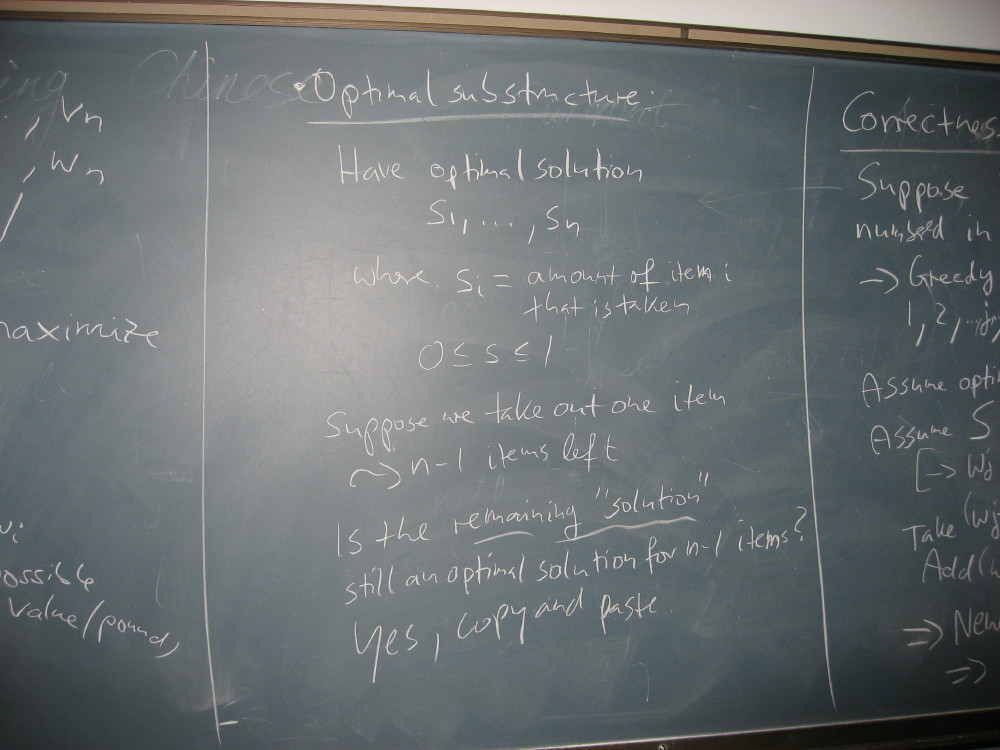 , Vn
, Wn
maximize
possible
value/pound,
Chinese
• Optimal substructure:
Have optimal solution
S1, ..., Sn
where Si = amount of item i
that is taken
0 ≤ S ≤ 1
Suppose we take out one item
⤳ n-1 items left
Is the remaining "solution"
still an optimal solution for n-1 items?
Yes, copy and paste.
Correctness
Suppose
numbered in
→ Greedy
1, 2, ..., j,
Assume opti
Assume S
[→ Wj
Take (Wj
Add (W
⇒ New
⇒